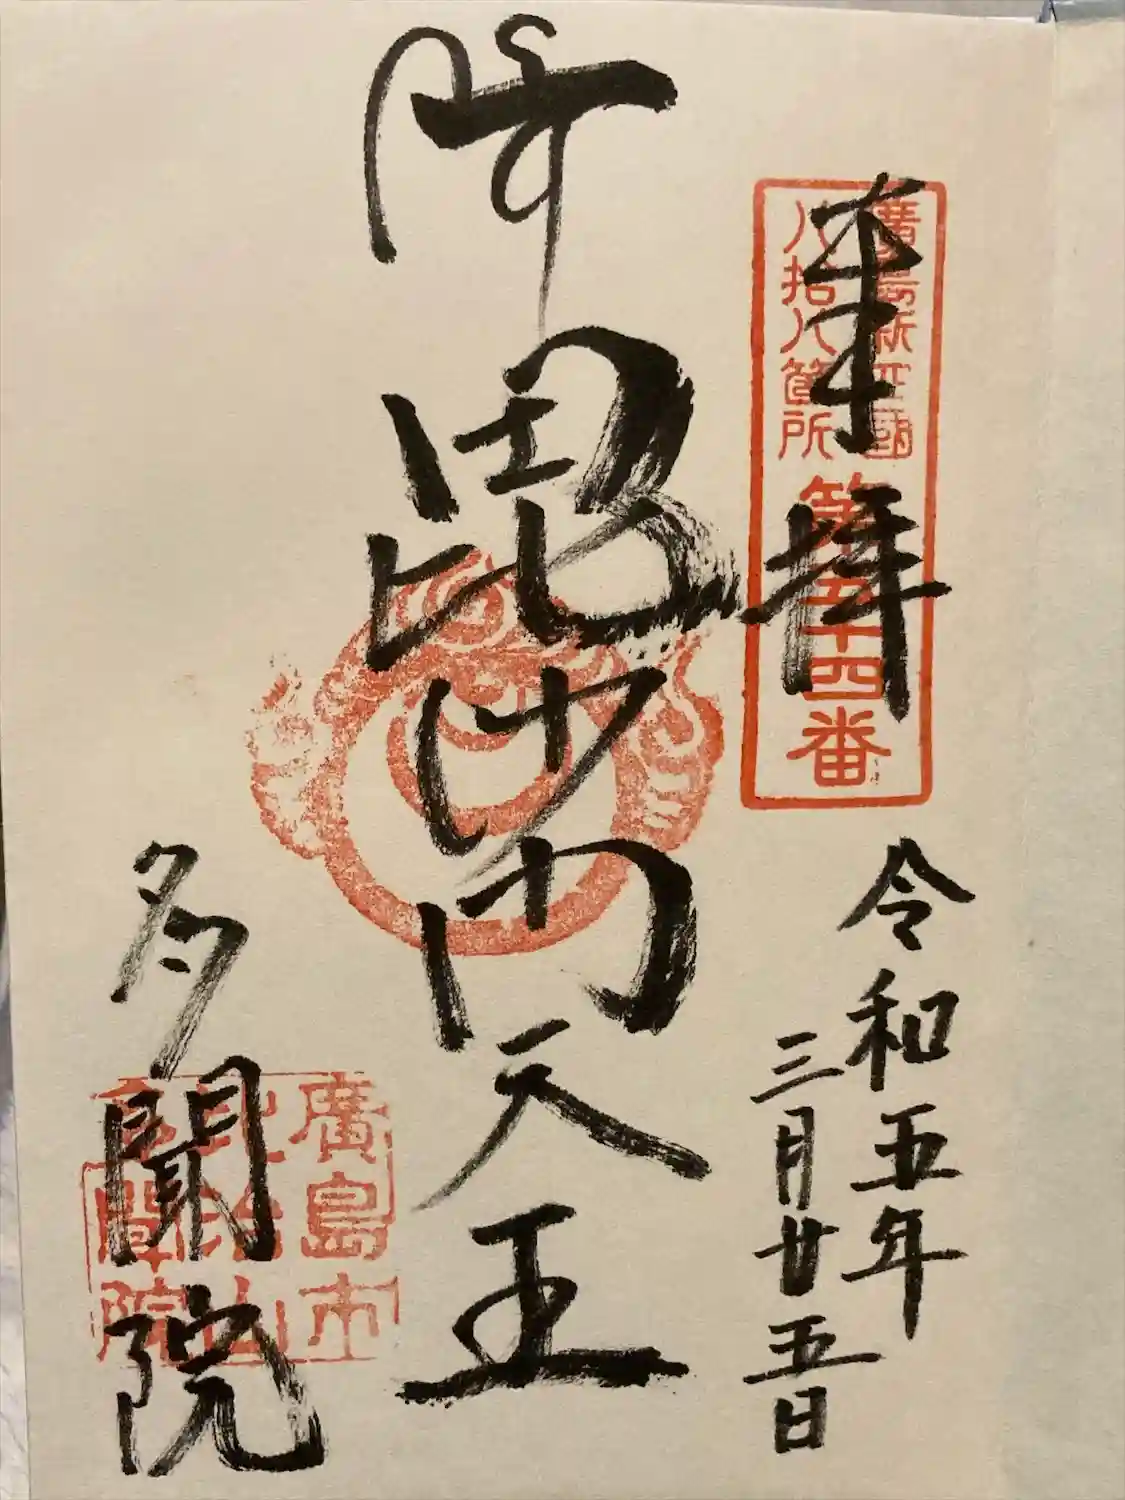 廣島新四國
八拾八箇所
第五十四番
奉拝
令和五年
三月廿五日
毘沙門天王
多聞院
廣島市
比治山
多聞院